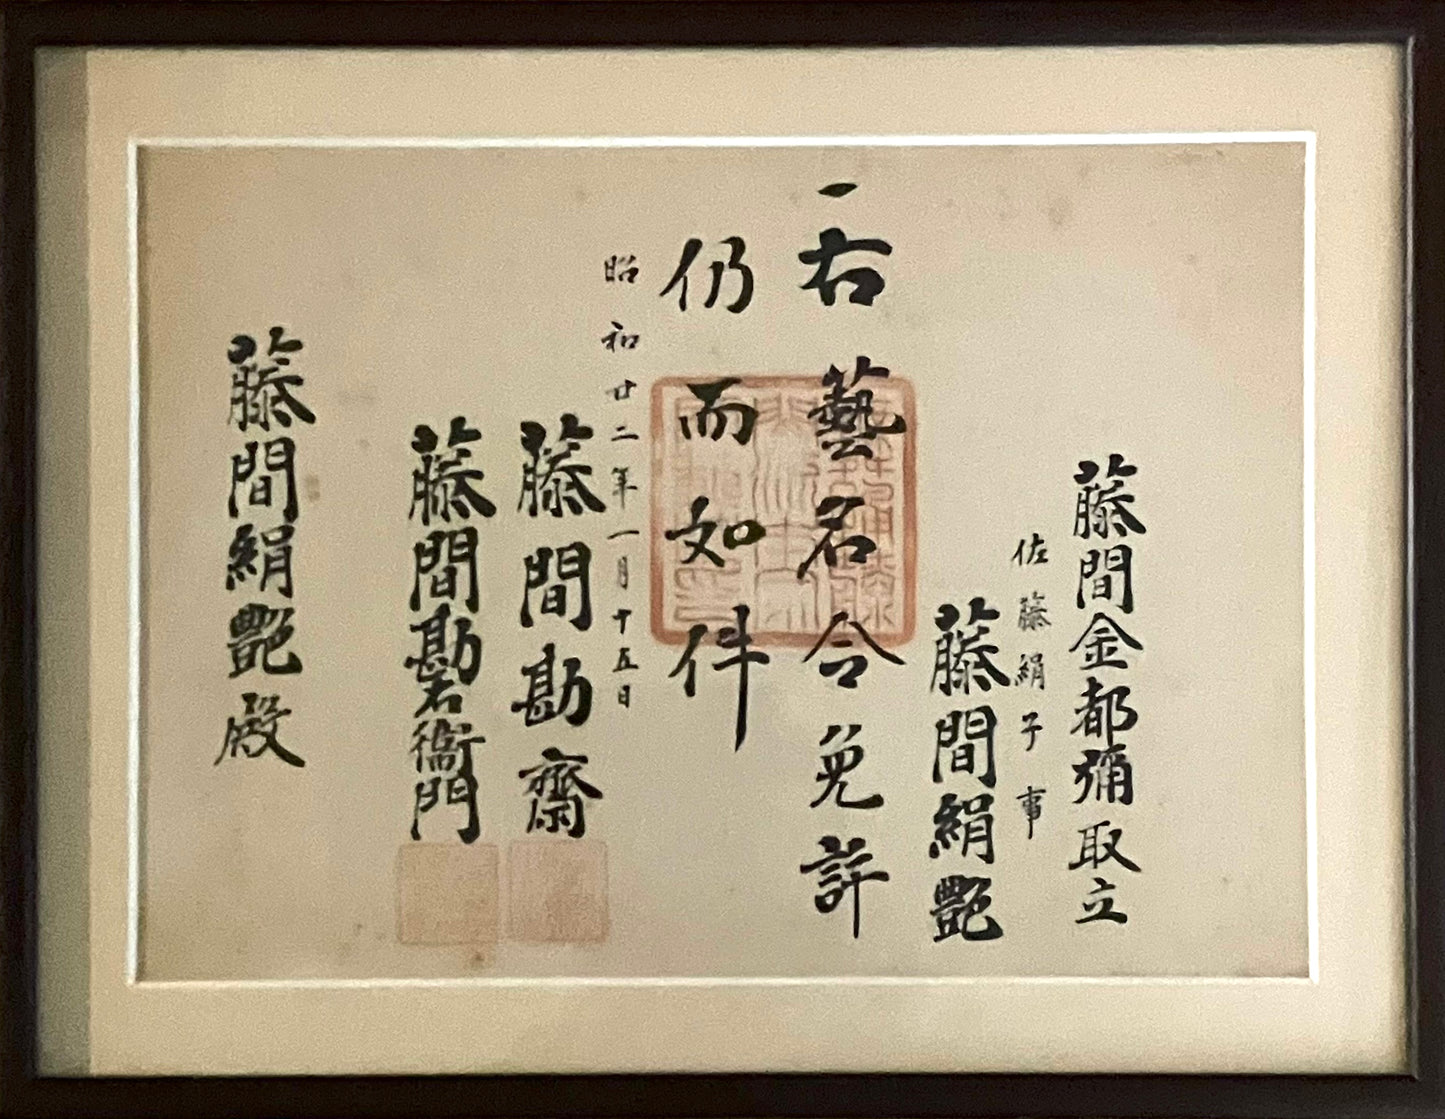 藤間金都彌取立
佐藤絹子事
藤間絹艷
一右藝名令免許
仍而如件
昭和廿二年一月十五日
藤間勘齋
藤間勘右衞門
藤間絹艷殿